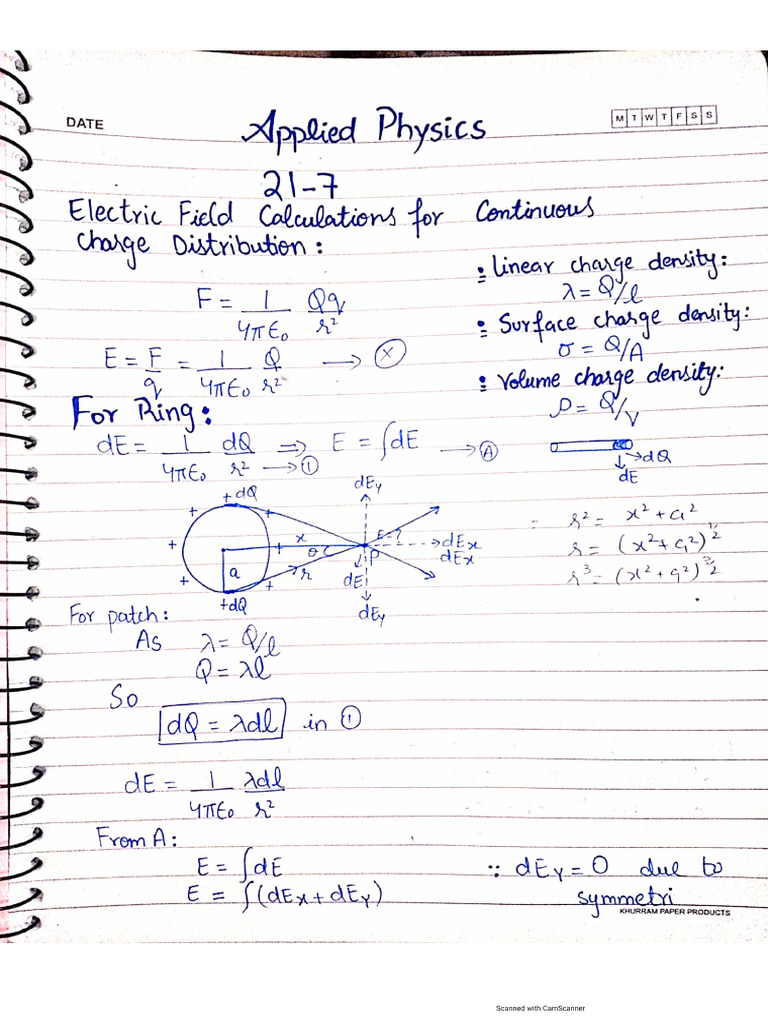 DATE
M T W T F S S
Applied Physics
21-7
Electric Field Calculations for Continuous
Charge Distribution:
: Linear charge density:
λ = Q/l
: Surface charge density:
σ = Q/A
: Volume charge density:
ρ = Q/V
F = 1/4πε₀ Qq/r²
E = F/q = 1/4πε₀ Q/r² → (X)
For Ring:
dE = 1/4πε₀ dQ/r² → ① ⇒ E = ∫dE → Ⓐ
→dQ
dE
+dQ
dEy
+ + + + + +
x
E=?
θ
P
→dEx
dEx
a
r
dE
+dQ
dEy
= r² = x² + a²
r = (x² + a²)^1/2
r³ = (x² + a²)^3/2
For patch:
As λ = Q/l
Q = λl
So
dQ = λdl in ①
dE = 1/4πε₀ λdl/r²
From A:
E = ∫dE
E = ∫(dEx + dEy)
∵ dEy = 0 due to
symmetri
KHURRAM PAPER PRODUCTS
Scanned with CamScanner